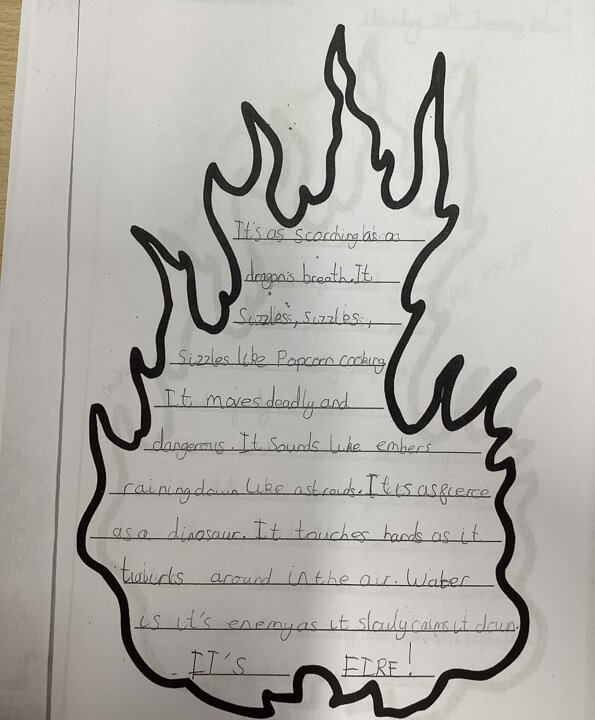 It's as scorching as a
dragon's breath. It
Sizzles, sizzles,
sizzles like Popcorn cooking
It moves deadly and
dangerous. It sounds like embers
raining down like astroids. It is as fierce
as a dinosaur. It touches hands as it
around in the air. Water
is it's enemy as it slowly calms it down.
IT'S FIRE!